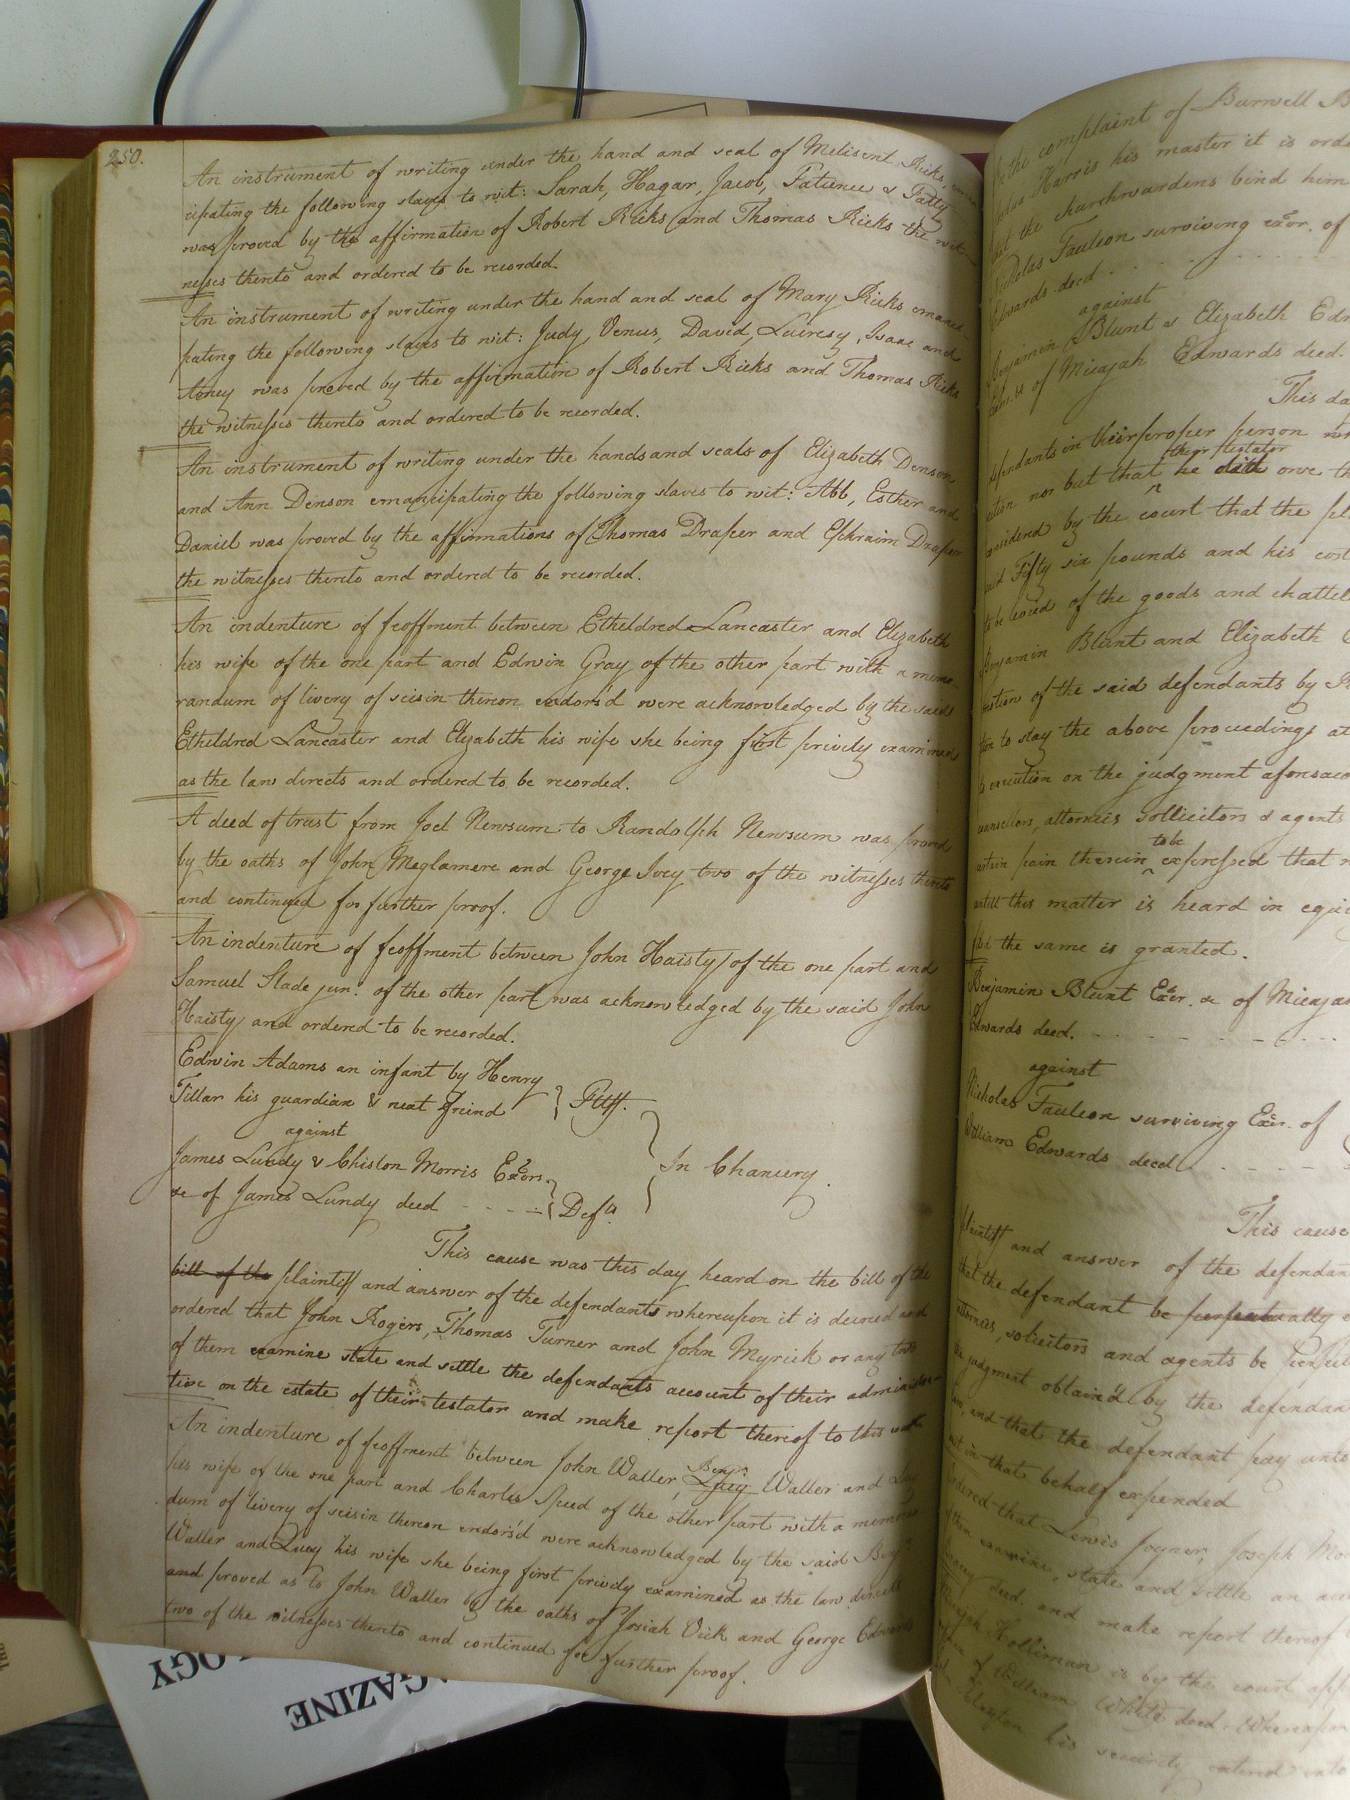 250.
An instrument of writing under the hand and seal of Melisent Ricks, eman
cipating the following slaves to wit: Sarah, Hagar, Jacob, Patience & Patty
was proved by the affirmation of Robert Ricks and Thomas Ricks the wit
nesses thereto and ordered to be recorded.
An instrument of writing under the hand and seal of Mary Ricks emanci
pating the following slaves to wit: Judy, Venus, David, Lucresy, Isaac and
Aney was proved by the affirmation of Robert Ricks and Thomas Ricks
the witnesses thereto and ordered to be recorded.
An instrument of writing under the hands and seals of Elizabeth Denson
and Ann Denson emancipating the following slaves to wit: Abb, Esther and
Daniel was proved by the affirmations of Thomas Draper and Ephraim Draper
the witnesses thereto and ordered to be recorded.
An indenture of feoffment between Etheldred Lancaster and Elizabeth
his wife of the one part and Edwin Gray of the other part with a memo
randum of livery of seisin thereon endors'd were acknowledged by the said
Etheldred Lancaster and Elizabeth his wife she being first privily examined
as the law directs and ordered to be recorded.
A deed of trust from Joel Newsum to Randolph Newsum was proved
by the oaths of John Meglamere and George Ivey two of the witnesses thereto
and continued for further proof.
An indenture of feoffment between John Haisty of the one part and
Samuel Slade jun. of the other part was acknowledged by the said John
Haisty and ordered to be recorded.
Edwin Adams an infant by Henry
Tillar his guardian & next freind } Pltff.
against
In Chancery.
James Lundy & Chislon Morris Exors.
&c of James Lundy deed } Defts.
This cause was this day heard on the bill of the
bill of the plaintiff and answer of the defendants whereupon it is decreed and
ordered that John Rogers, Thomas Turner and John Myrick or any two
of them examine state and settle the defendants account of their administra
tion on the estate of their testator and make report thereof to this court
An indenture of feoffment between John Waller, Benja. Lucy Waller and Lucy
his wife of the one part and Charles Speed of the other part with a memoran
dum of livery of seisin thereon endors'd were acknowledged by the said Benja.
Waller and Lucy his wife she being first privily examined as the law directs
and proved as to John Waller by the oaths of Josiah Vick and George Edwards
two of the witnesses thereto and continued for further proof.
the complaint of Burwell
Harris his master it is
the churchwardens bind him
Faulcon surviving exor. of
Edwards deed
against
Benjamin Blunt & Elizabeth
of Micajah Edwards deed.
This
defendants in their proper person
their testator
nor but that he did owe
considered by the court that the
said Fifty six pounds and his
to be levied of the goods and
Benjamin Blunt and Elizabeth
motion of the said defendants by
to stay the above proceedings
execution on the judgment
counsellors, attornies sollicitors & agents
to be
certain pain therein expressed that
untill this matter is heard in
the same is granted.
Benjamin Blunt Exor. &c of
Edwards deed.
against
Nicholas Faulcon surviving Exor. of
William Edwards deed
This cause
plaintiff and answer of the
that the defendant be perpetually
attornies, solicitors and agents be
judgment obtain'd by the
and that the defendant pay unto
in that behalf expended
Ordered that Lewis Joyner, Joseph
examine, state and settle an
deed. and make report thereof
Holliman is by the court
of William White deed. Whereupon
his security entered into
MAGAZINE
OGY